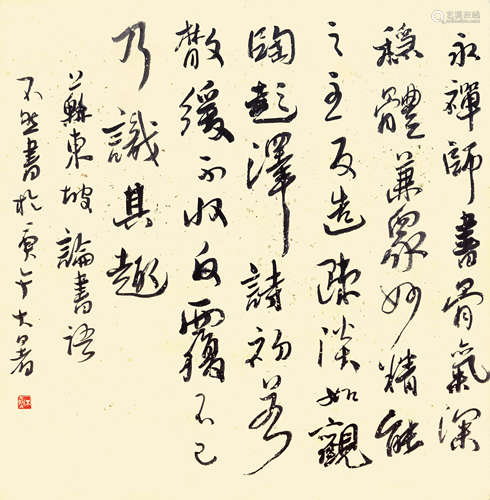 永禪師書骨氣深
穩體兼眾妙精能
之至反造疎淡如觀
陶彭澤詩初若
散緩不收反覆不已
乃識其趣
蘇東坡論書語
不書於庚午大暑